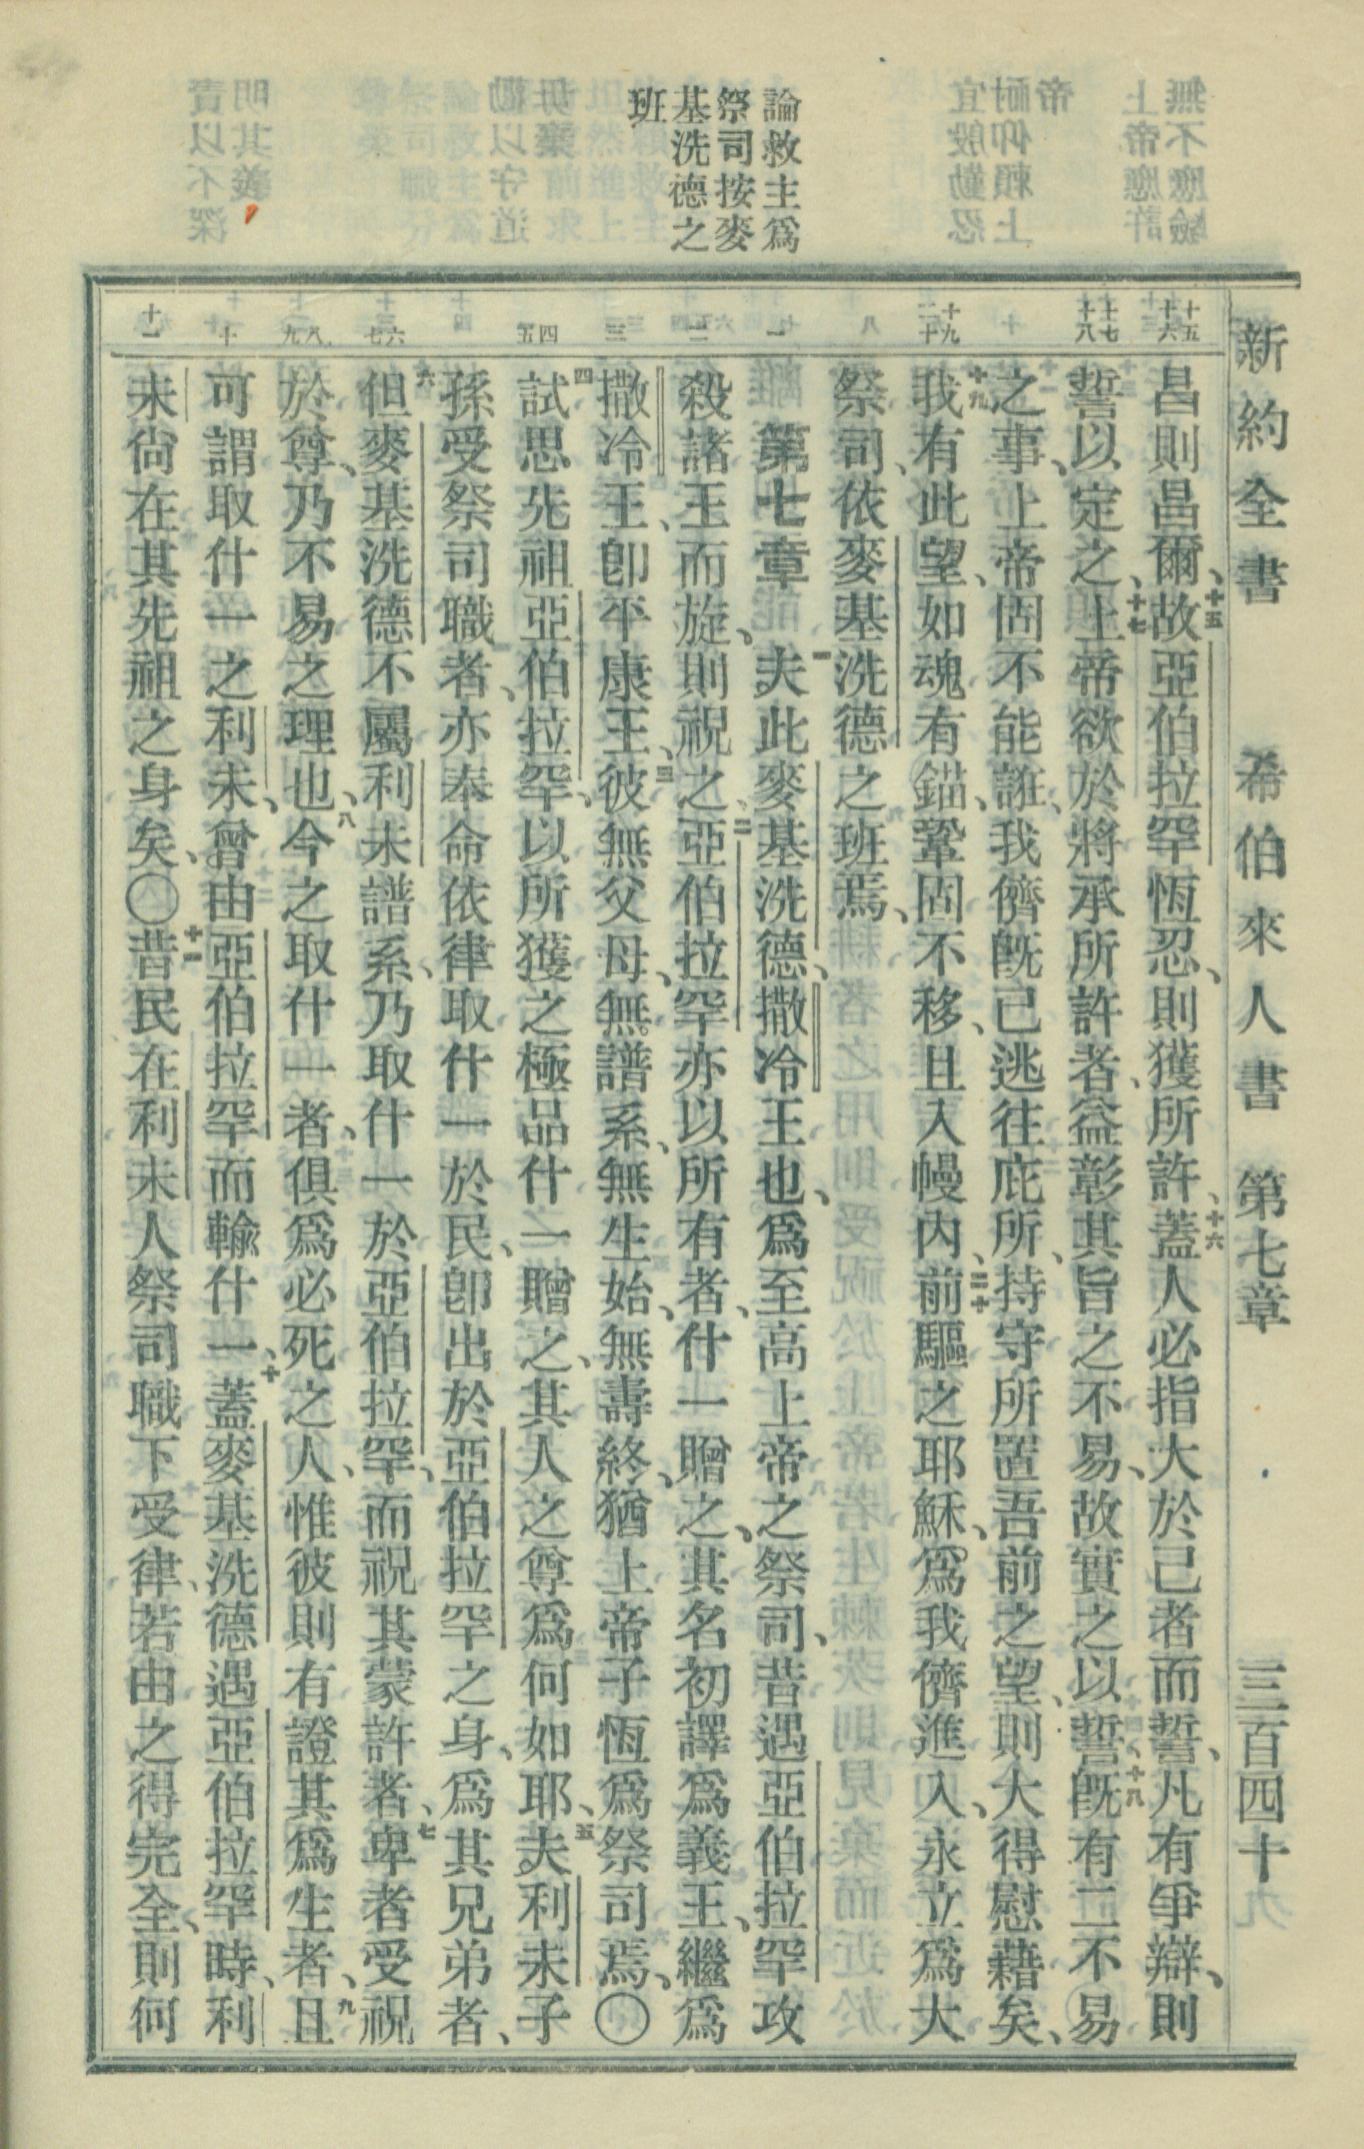 新約全書　希伯來人書　第七章　三百四十
論救主爲
祭司按麥
基洗德之
班
十五
十六
十七
十八
十九
二十
一
二
三
四
五
六
七
八
九
十
十一
昌則昌爾、十五故亞伯拉罕恆忍、則獲所許、十六蓋人必指大於己者而誓、凡有爭辯、則
誓以定之、十七上帝欲於將承所許者、益彰其旨之不易、故實之以誓、十八旣有二不易
之事、上帝固不能誑、我儕旣已逃往庇所、持守所置吾前之望、則大得慰藉矣、
十九我有此望、如魂有錨、鞏固不移、且入幔內、二十前驅之耶穌、爲我儕進入、永立爲大
祭司、依麥基洗德之班焉、
第七章　一夫此麥基洗德、撒冷王也、爲至高上帝之祭司、昔遇亞伯拉罕攻
殺諸王而旋、則祝之、二亞伯拉罕亦以所有者、什一贈之、其名初譯爲義王、繼爲
撒冷王、卽平康王、三彼無父母、無譜系、無生始、無壽終、猶上帝子恆爲祭司焉、〇
四試思先祖亞伯拉罕、以所獲之極品什一贈之、其人之尊爲何如耶、五夫利未子
孫受祭司職者、亦奉命依律取什一於民、卽出於亞伯拉罕之身、爲其兄弟者、
六但麥基洗德不屬利未譜系、乃取什一於亞伯拉罕、而祝其蒙許者、七卑者受祝
於尊、乃不易之理也、八今之取什一者、俱爲必死之人、惟彼則有證其爲生者、九且
可謂取什一之利未、曾由亞伯拉罕而輸什一、十蓋麥基洗德遇亞伯拉罕時、利
未尙在其先祖之身矣、〇十一昔民在利未人祭司職下受律、若由之得完全、則何